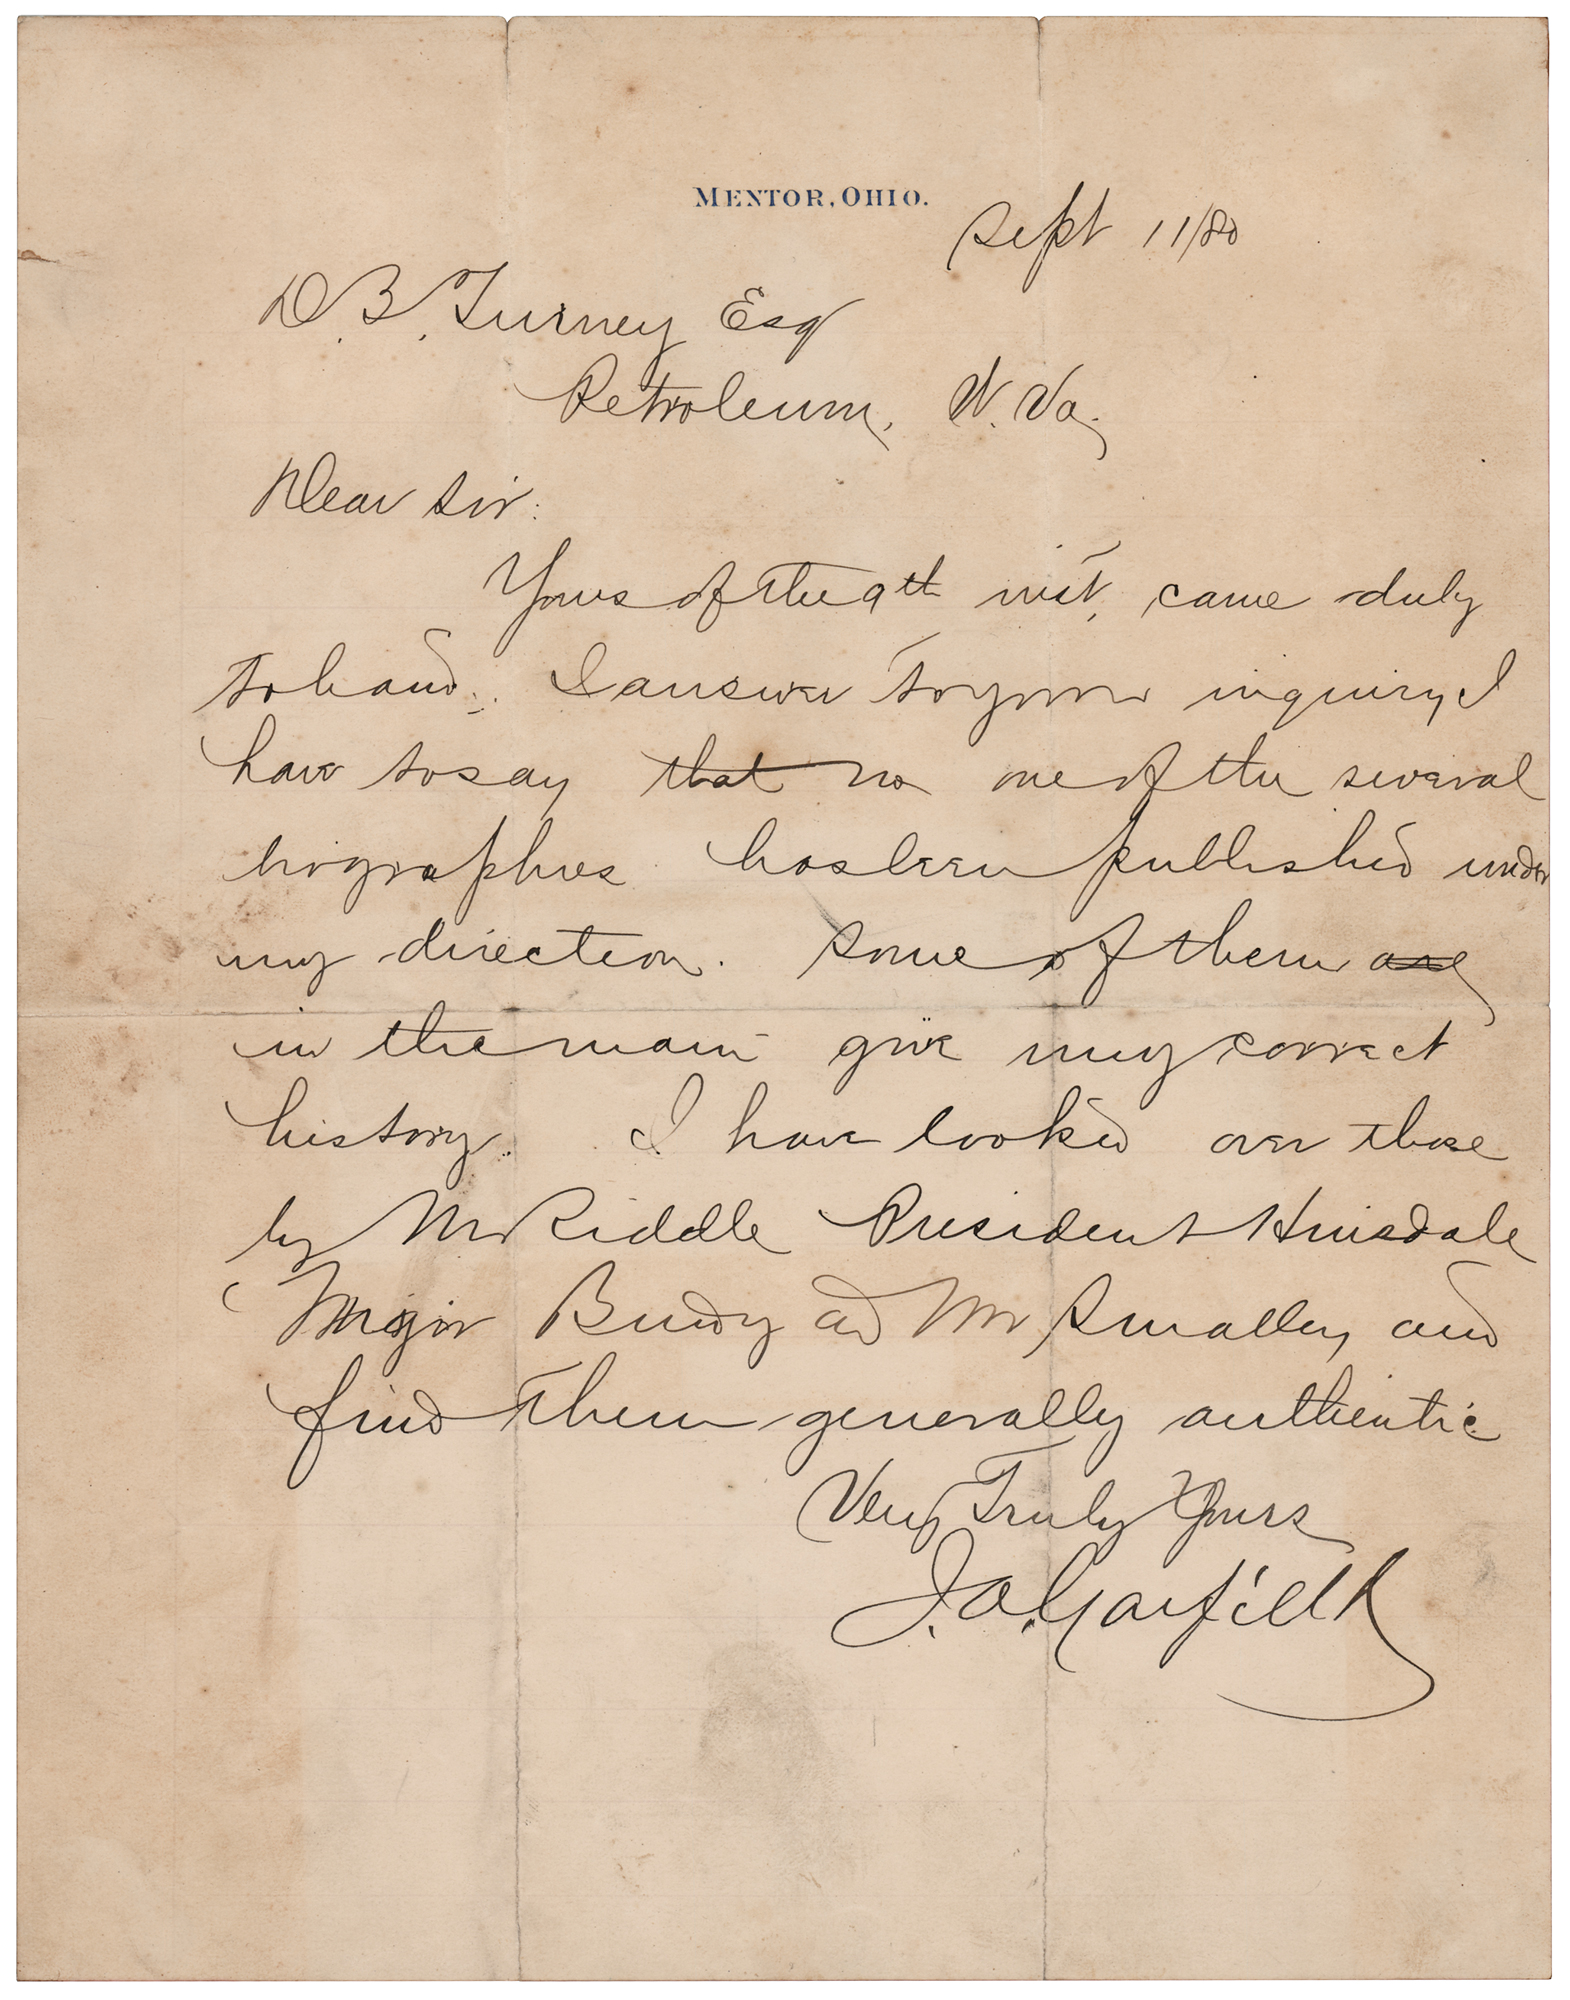 MENTOR, OHIO.
Sept 11/80
D. B. Turney Esq
Petroleum, W. Va.
Dear Sir:
Yours of the 9th inst, came duly
to hand. I answer to your inquiry I
have to say that no one of the several
biographies has been published under
my direction. Some of them are
in the main give my correct
history. I have looked over those
by Mr Riddle President Hinsdale
Major Bundy and Mr Smalley and
find them generally authentic
Very Truly Yours
J. A. Garfield